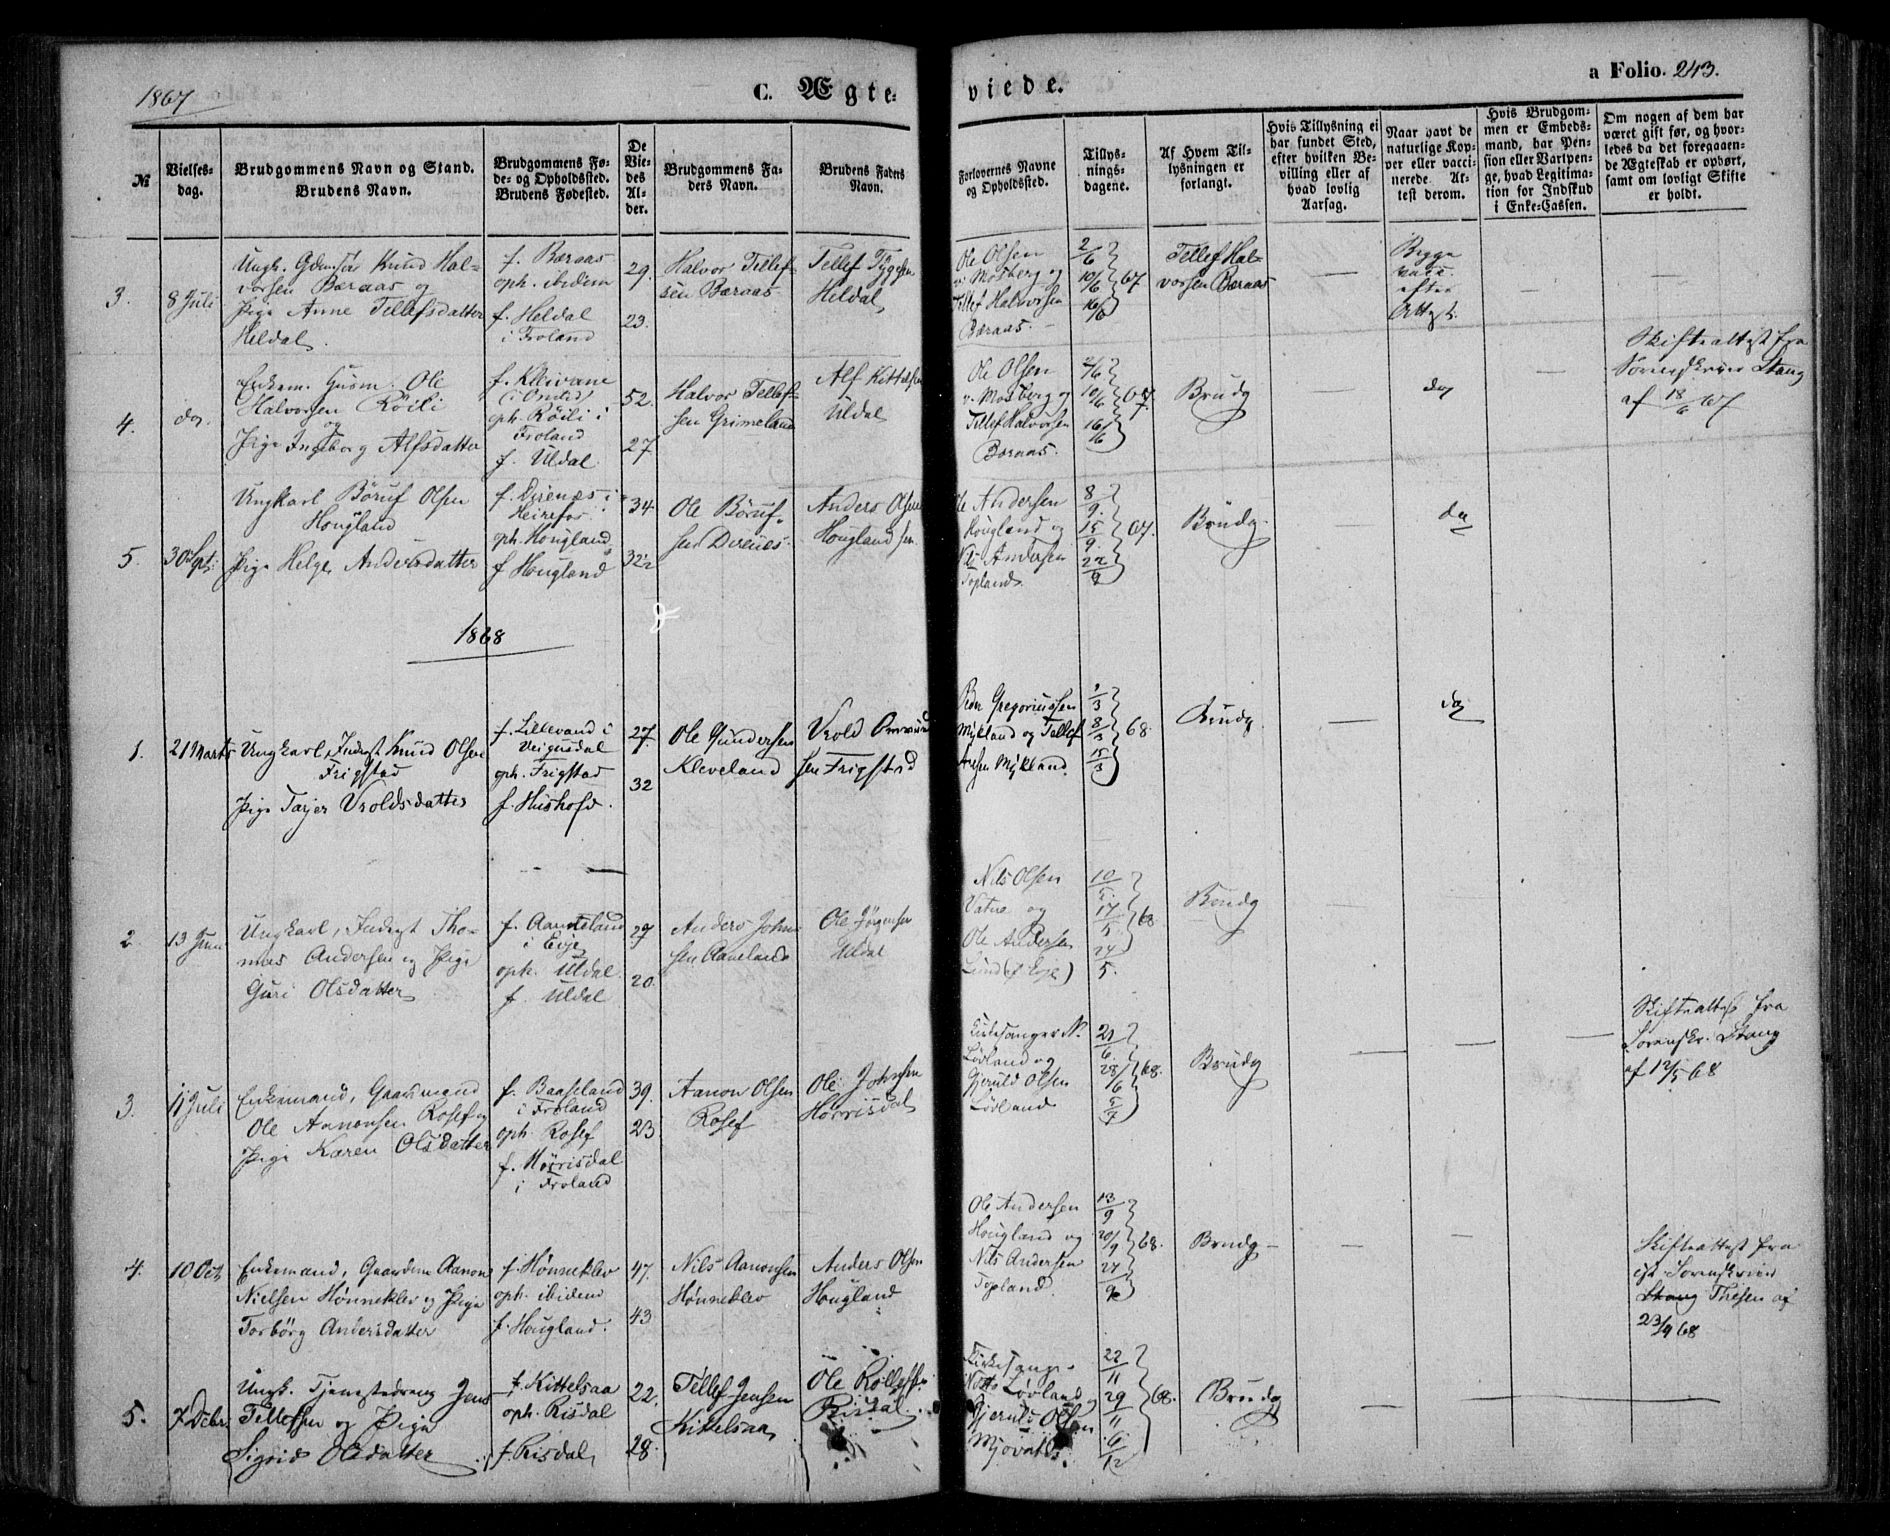 1867
C. Ægte-
viede.
a Folio. 243.
№
Vielses-
dag.
Brudgommens Navn og Stand.
Brudens Navn.
Brudgommens Fø-
de- og Opholdssted.
Brudens Fødested.
De
Vie-
des
Al-
der.
Brudgommens Fa-
ders Navn.
Brudens Faders
Navn.
Forlovernes Navne
og Opholdssted.
Tillys-
nings-
dagene.
Af Hvem Til-
lysningen er
forlangt.
Hvis Tillysning ei
har fundet Sted,
efter hvilken Be-
villing eller af
hvad lovlig
Aarsag.
Naar havt de
naturlige Kop-
per eller vacci-
nerede. At-
test derom.
Hvis Brudgom-
men er Embeds-
mand, har Pen-
sion eller Vartpen-
ge, hvad Legitima-
tion for Indskud
i Enke-Cassen.
Om nogen af dem har
været gift før, og hvor-
ledes da det foregaaen-
de Ægteskab er ophørt,
samt om lovligt Skifte
er holdt.
3.
8 Juli
Ungk. Knud Hal-
vorsen Bæraas og
Pige Anne Tellefsdatter
Heldal.
f. Bæraas
oph. ibidem
f. Heldal
i Froland
29.
23.
Halvor Tellef-
sen Bæraas
Tellef
Heldal
Ole Olsen
v. Mosberg og
Tellef Halvorsen
Bæraas.
2/6
10/6 67
16/6
Tellef Hal-
vorsen Bæraas
Begge
vacc.
efter
Attest.
4.
do.
Enkem. Husm. Ole
Halvorsen Röili
og
Pige Ingeborg Alfsdatter
f.
oph. Röili i
Froland
f. Uldal
52.
27
Halvor Tellef-
sen Grimeland
Alf
Uldal
Ole Olsen
v. Mosberg og
Tellef Halvorsen
Bæraas.
2/6
10/6 67.
16/6
Brudg
do
Skifteattest fra
Sorenskriver Stang
af 18/6 67
5.
30 Spt:
Ungkarl Böruf Olsen
Hougland
Pige Helge Andersdatter
f. Direnes i
Heirefos
oph. Hougland
f Hougland
34.
32½
Ole Böruf-
sen Direnes.
Anders Olsen
Hougland
Ole Andersen
Hougland og
Nils Andersen
Topland
8/9.
15/9. 67.
22/9
Brudg.
do
1868
1.
21 Marts
Ungkarl, Inderst Knud Olsen
Frigstad
Pige Tarjer Vroldsdatter
f. Lillevand i
Veigusdal
oph. Frigstad
f
27.
32
Ole Gundersen
Kleveland
Vrold
sen Frigstad
Peder Gregoriussen
Mykland og Tellef
Mykland.
1/3
8/3 68.
15/3
Brudg.
do
2.
13 Juni
Ungkarl, Inderst Tho-
mas Andersen og Pige
Guri Olsdatter
f.
i Evje
oph. Uldal.
f. Uldal
27
20
Anders
sen
Ole Jörgensen
Uldal
Nils Olsen
Vatne og
Ole Andersen
Lund (f Evje)
10/5.
17/5. 68.
24/5.
Brudg
3.
11 Juli
Enkemand, Gaardmand
Ole Aanonsen Rosef og
Pige Karen Olsdatter
f. Baaseland
i Froland
oph. Rosef
f. Hörrisdal
i Froland
39.
23
Aanon Olsen
Rosef
Ole Johnsen
Hörrisdal
Kirkesanger N.
Lövland og
Gjeruld Olsen
Lövland
21/6.
28/6 68.
5/7
Brudg
Skifteattest fra
Sorenskr. Stang
af 12/5 68
4.
10 Oct
Enkemand, Gaardm Aanon
Nielsen Hönneklev og Pige
Torbörg Andersdatter
f. Hönneklev
oph. ibidem
f. Hougland.
47.
43
Nils Aanonsen
Hönneklev
Anders Olsen
Hougland
Ole Andersen
Hougland og
Nils Andersen
Topland.
13/9
20/9 68.
27/9
Brudg
Skifteattest fra
cst. Sorenskriver
Stang Thesen af
23/9 68
5.
7 Debr.
Ungk. Tjenestedreng Jens
Tellefsen og Pige
Sigrid Olsdatter
f. Kittelsaa
oph. Risdal
f. Risdal
22.
28.
Tellef Jensen
Kittelsaa
Ole
Risdal
Kirkesanger
Lövland
Gjeruld Olsen
22/11
29/11 68.
6/12
Brudg